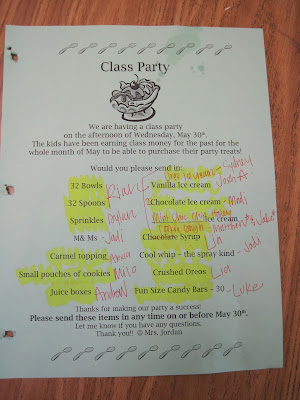 Class Party
We are having a class party
on the afternoon of Wednesday, May 30th.
The kids have been earning class money for the past for the
whole month of May to be able to purchase their party treats!
Would you please send in:
32 Bowls
32 Spoons
Sprinkles Dylan
M& Ms Jadi
Carmel topping Anna
Small pouches of cookies Mila
Juice boxes Andrew
Sydney
Vanilla Ice cream Josh A.
2Chocolate Ice cream - Madi
Mint choc chip Ice cream
Cookie dough
Chocolate Syrup Lia
Cool whip – the spray kind - Jake
Crushed Oreos Lia
Fun Size Candy Bars – 30 - Luke
Thanks for making our party a success!
Please send these items in any time on or before May 30th.
Let me know if you have any questions.
Thank you!! ☺ Mrs. Jordan